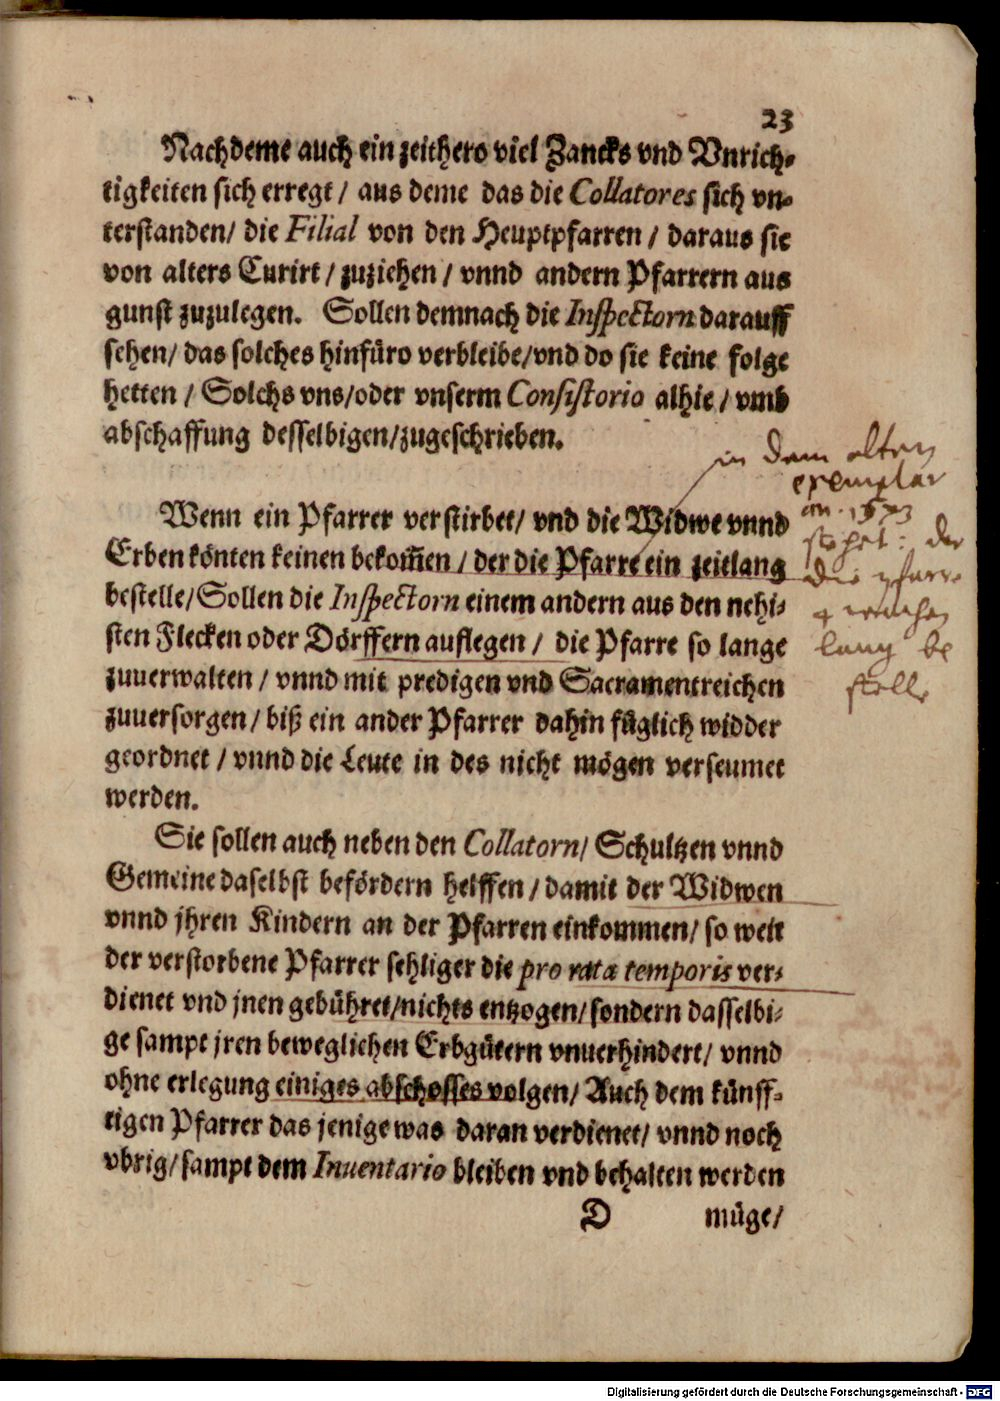 23
Nachdeme auch ein zeithero viel Zancks vnd Vnrich-
tigkeiten sich erregt / aus deme das die Collatores sich vn-
terstanden / die Filial von den Heuptpfarren / daraus sie
von alters Curirt / zuziehen / vnnd andern Pfarrern aus
gunst zuzulegen. Sollen demnach die Inspectorn darauff
sehen / das solches hinfüro verbleibe / vnd do sie keine folge
hetten / Solchs vns / oder vnserm Consistorio alhie / vmb
abschaffung desselbigen / zugeschrieben.
Wenn ein Pfarrer verstirbet / vnd die Widwe vnnd
Erben könten keinen bekom̃en / der die Pfarre ein zeitlang
bestelle / Sollen die Inspectorn einem andern aus den nehi-
sten Flecken oder Dörffern auflegen / die Pfarre so lange
zuuerwalten / vnnd mit predigen vnd Sacramentreichen
zuuersorgen / biß ein ander Pfarrer dahin füglich widder
geordnet / vnnd die Leute in des nicht mögen verseumet
werden.
Sie sollen auch neben den Collatorn / Schultzen vnnd
Gemeine daselbst befördern helffen / damit der Widwen
vnnd jhren Kindern an der Pfarren einkommen / so weit
der verstorbene Pfarrer sehliger die pro rata temporis ver-
dienet vnd jnen gebühret / nichts entzogen / sondern dasselbi-
ge sampt jren beweglichen Erbgütern vnuerhindert / vnnd
ohne erlegung einiges abschosses volgen / Auch dem künff-
tigen Pfarrer das jenige was daran verdienet / vnnd noch
vbrig / sampt dem Inuentario bleiben vnd behalten werden
D müge /
in dem alten
exemplar
an. 1573
stehet: der
die pfarre
4 wochen
lang be
stelle
Digitalisierung gefördert durch die Deutsche Forschungsgemeinschaft - DFG